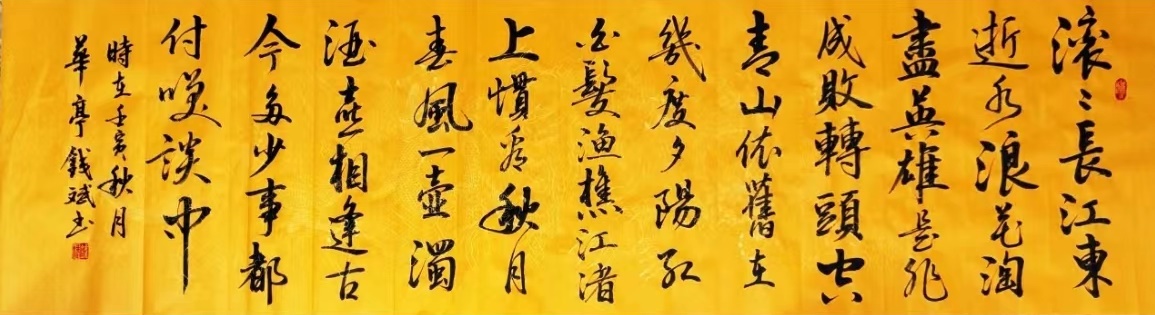 滚〻長江東
逝水浪花淘
盡英雄是非
成敗轉頭空
青山依舊在
幾度夕陽紅
白髮渔樵江渚
上慣看秋月
春風一壺濁
酒喜相逢古
今多少事都
付笑談中
時在壬寅秋月
華亭錢斌书